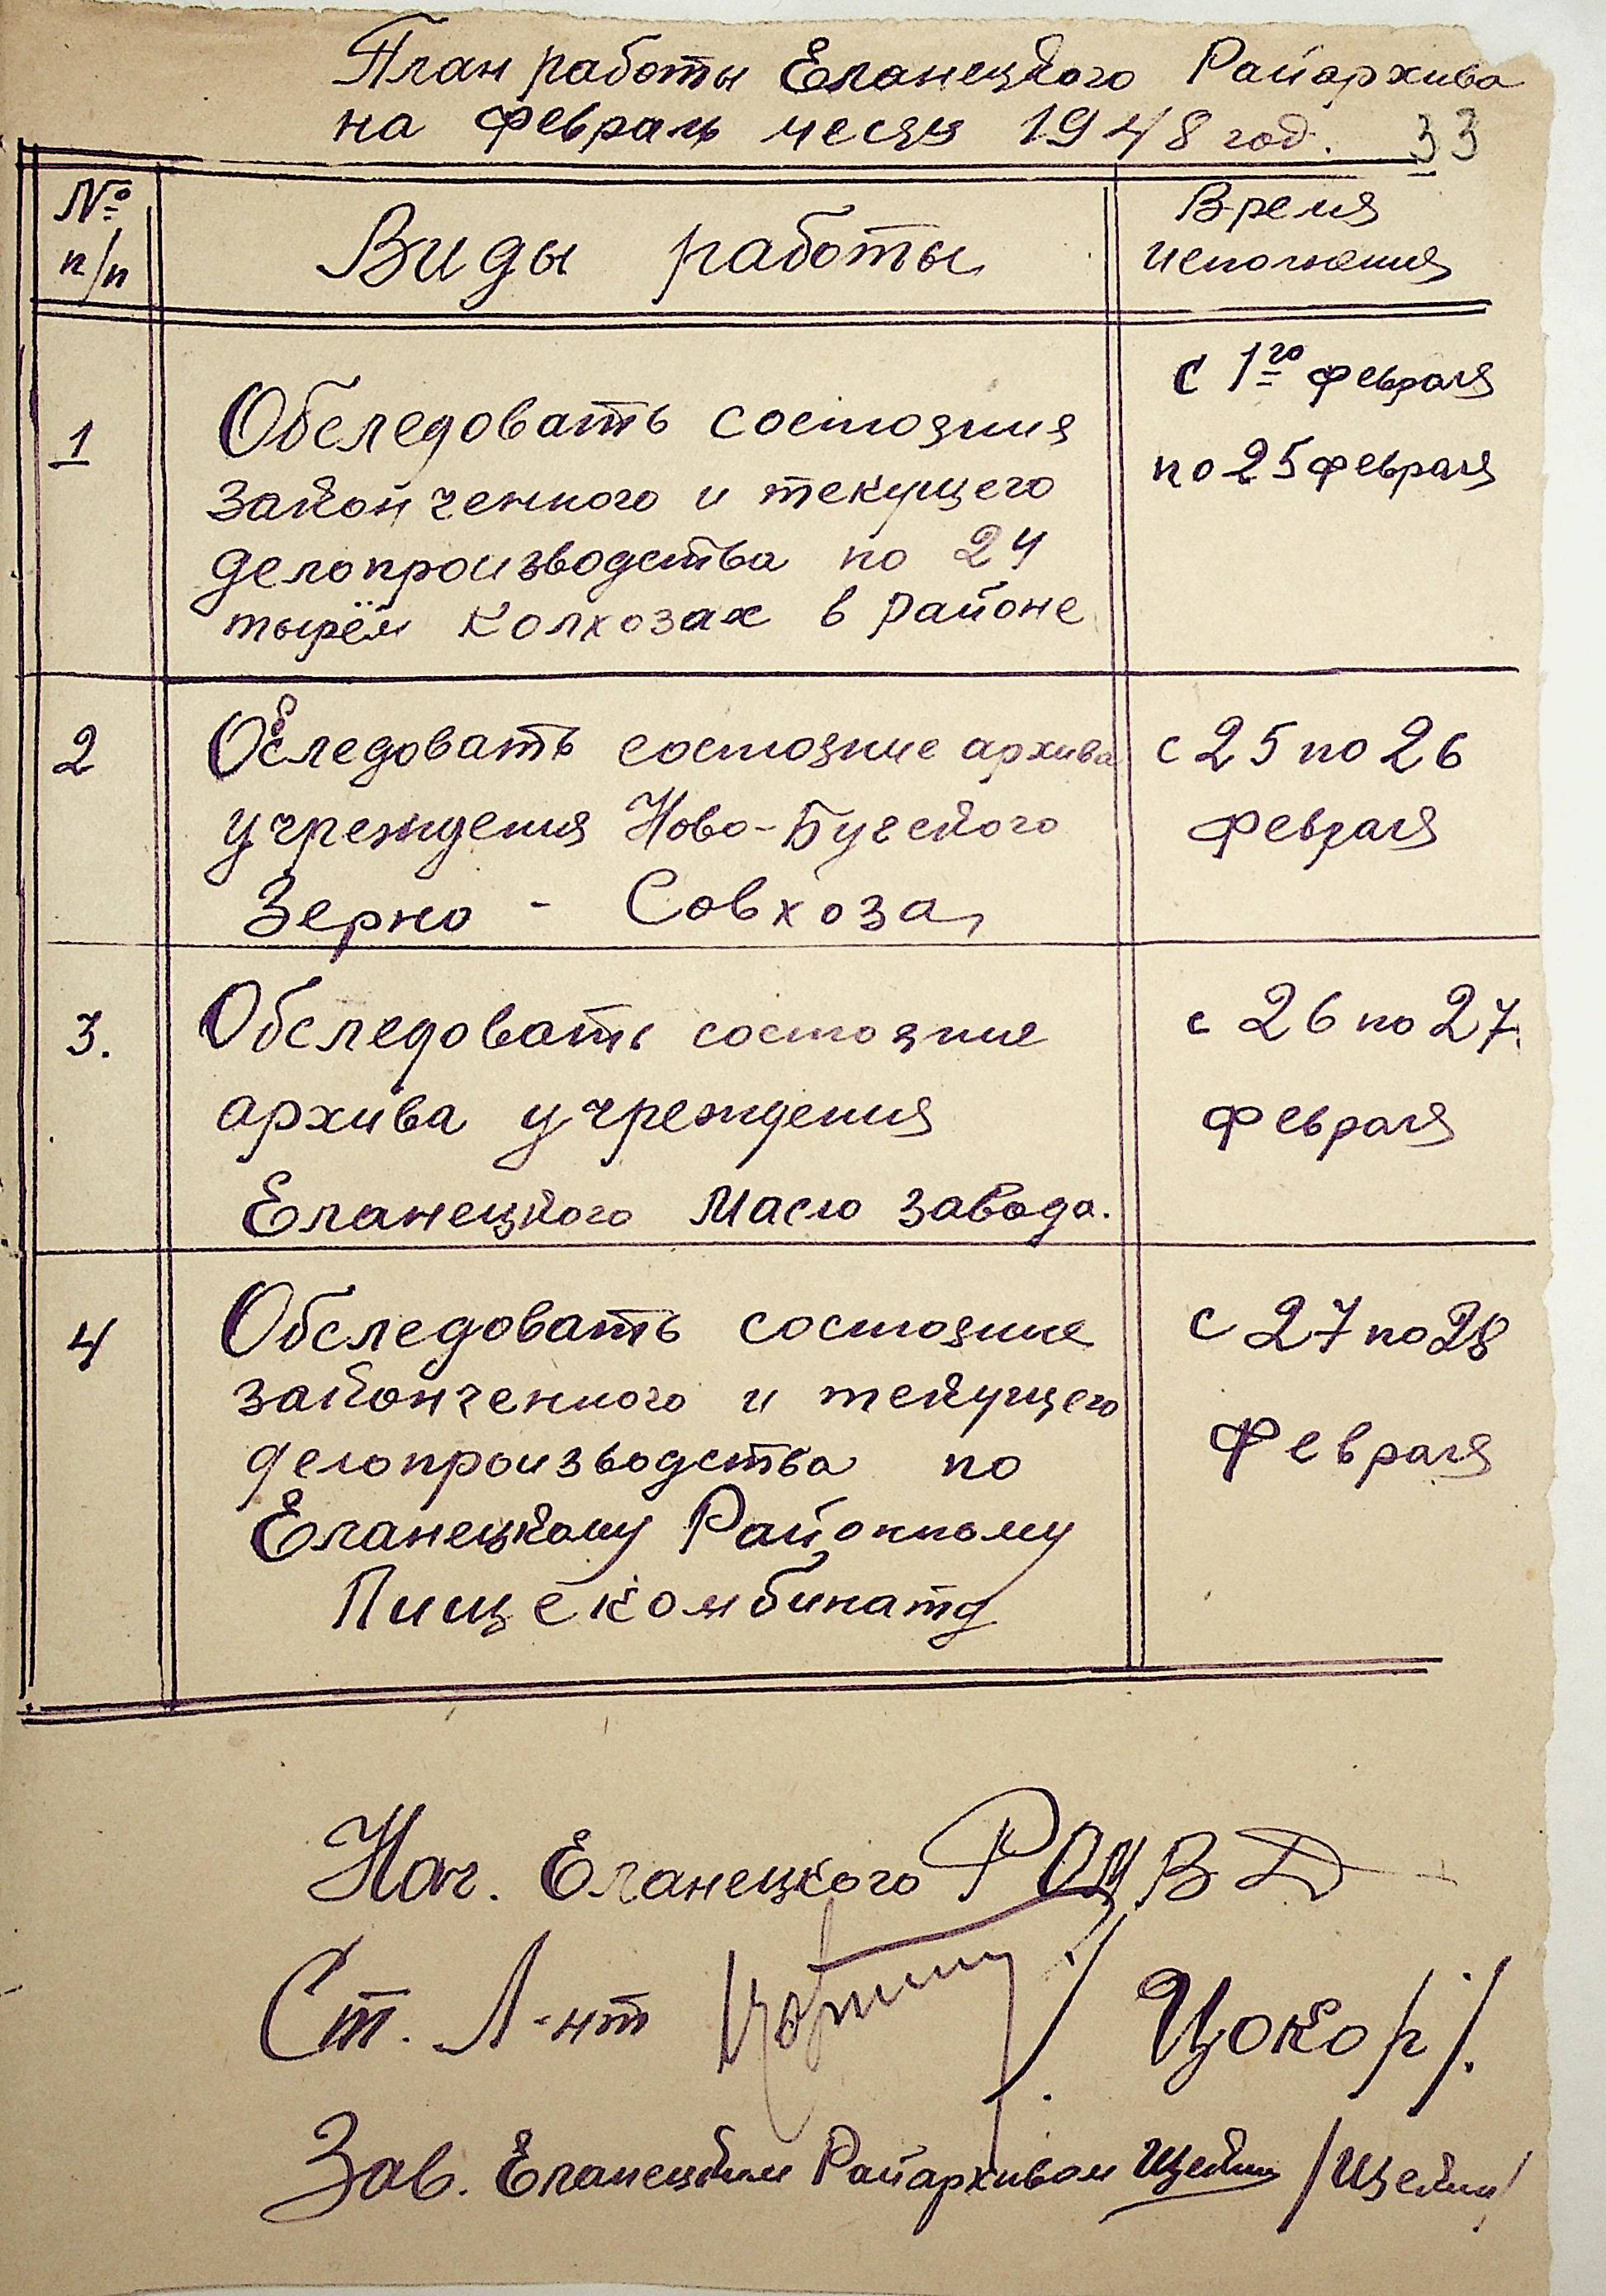 План работы Еланецкого Райархива
на февраль месяц 1948 год. 33
№ п/п
Виды работы
Время
исполнения
1
Обследовать состояния
законченного и текущего
делопроизводства по 24
тырём колхозах в районе
с 1го февраля
по 25 февраля
2
Обследовать состояние архива
учреждения Ново-Бугского
Зерно - Совхоза,
с 25 по 26
февраля
3.
Обследовать состояние
архива учреждения
Еланецкого Масло завода.
с 26 по 27.
февраля
4
Обследовать состояние
законченного и текущего
делопроизводства по
Еланецкому Районному
Пищекомбинату
с 27 по 28
Февраля
Нач. Еланецкого РОМВД
Ст. Л-нт / Цокор /.
Зав. Еланецким Райархивом